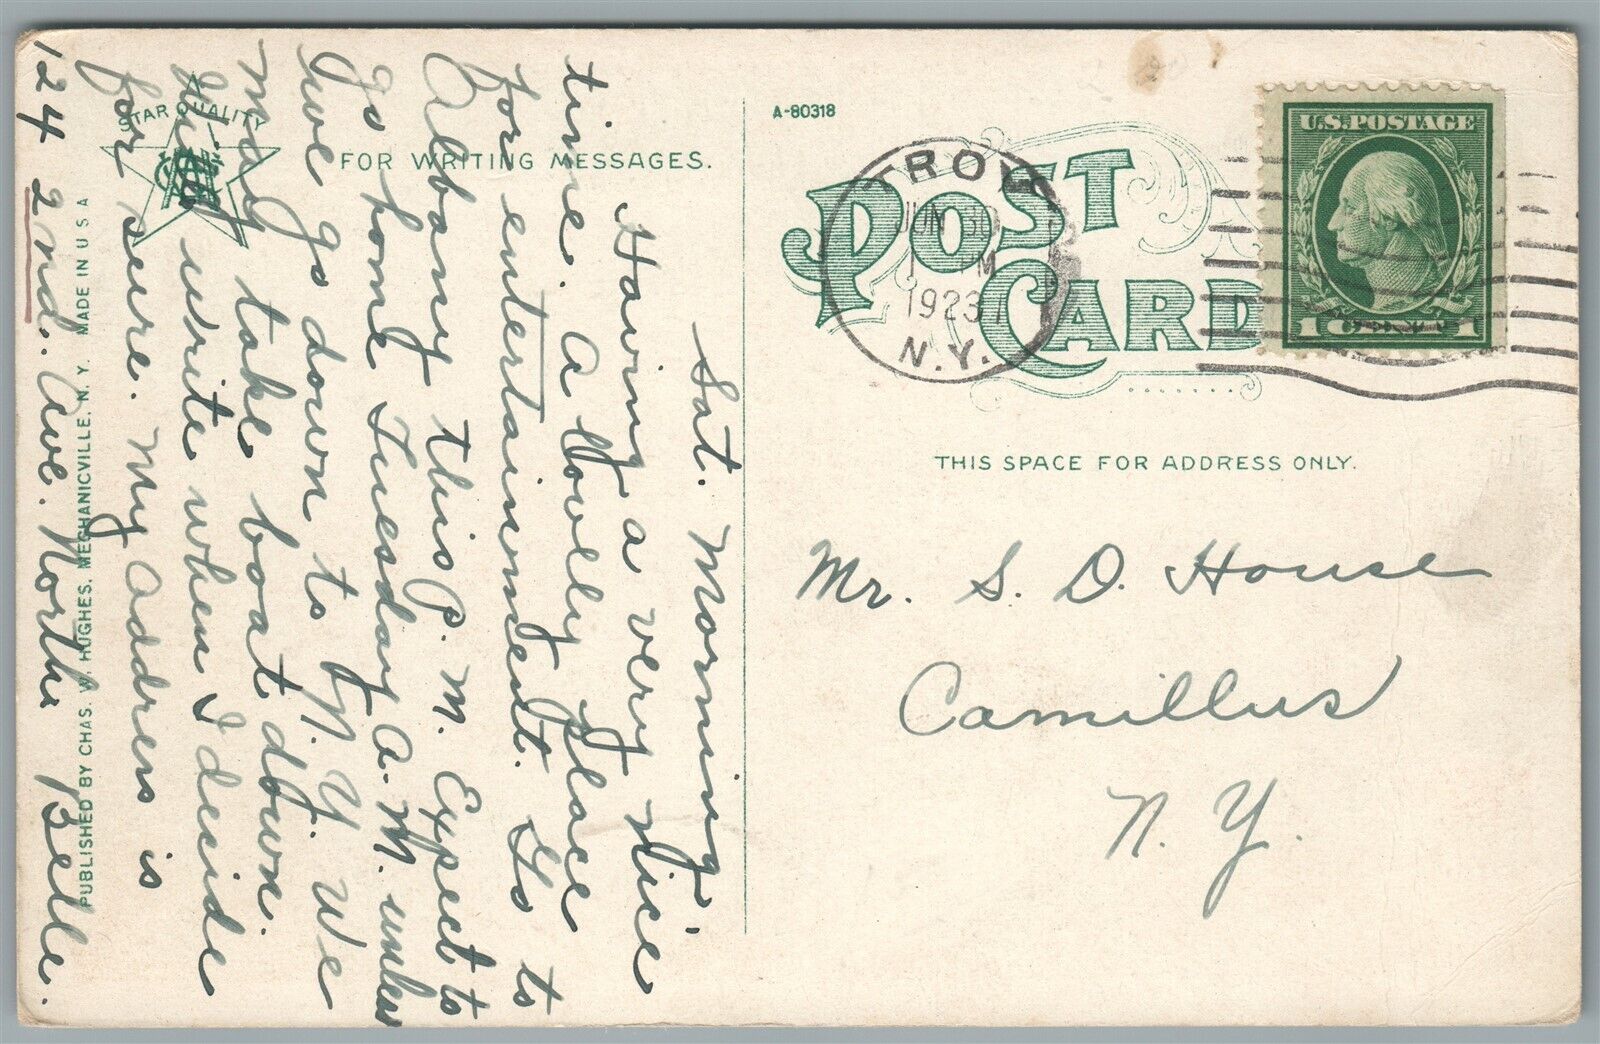 Sat. Morning.
Having a very Nice
time. A lovely place
for entertainment. Go to
Albany this P. M. Expect to
go home Tuesday A. M. unless
we go down to N. Y. We
may take boat down.
Will write when I decide
for sure. My address is
124 2nd. Ave. North Belle.
STAR QUALITY
FOR WRITING MESSAGES.
PUBLISHED BY CHAS. W. HUGHES, MECHANICVILLE, N. Y. MADE IN U S A
A-80318
POST CARD
TROY
JUN 30
PM
1923
N.Y.
U.S. POSTAGE
1 CENT 1
THIS SPACE FOR ADDRESS ONLY.
Mr. S. D. House
Camillus
N. Y.